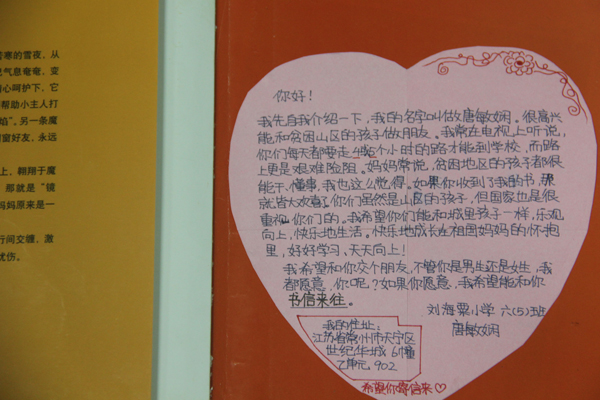 苦寒的雪夜，从
气息奄奄，变
心呵护下，它
帮助小主人打
焰”。另一条魔
密好友，永远
上，翱翔于魔
那就是“镜
妈妈原来是一
行间交缠，激
忧伤。
你好！
我先自我介绍一下，我的名字叫做唐敏娴。很高兴
能和贫困山区的孩子做朋友。我常在电视上听说，
你们每天都要走4或5个小时的路才能到学校，而路
上更是艰难险阻。妈妈常说，贫困地区的孩子都很
能干、懂事，我也这么觉得。如果你收到了我的书，那
就皆大欢喜了！你们虽然是山区的孩子，但国家也是很
重视你们的。我希望你们能和城里孩子一样，乐观
向上，快乐地生活。快乐地成长在祖国妈妈的怀抱
里，好好学习、天天向上！
我希望和你交个朋友，不管你是男生还是女生，我
都愿意，你呢？如果你愿意，我希望能和你
书信来往。
刘海粟小学 六(5)班
唐敏娴
我的住址：
江苏省常州市天宁区
世纪华城 6幢
乙单元，902
希望你寄信来♡